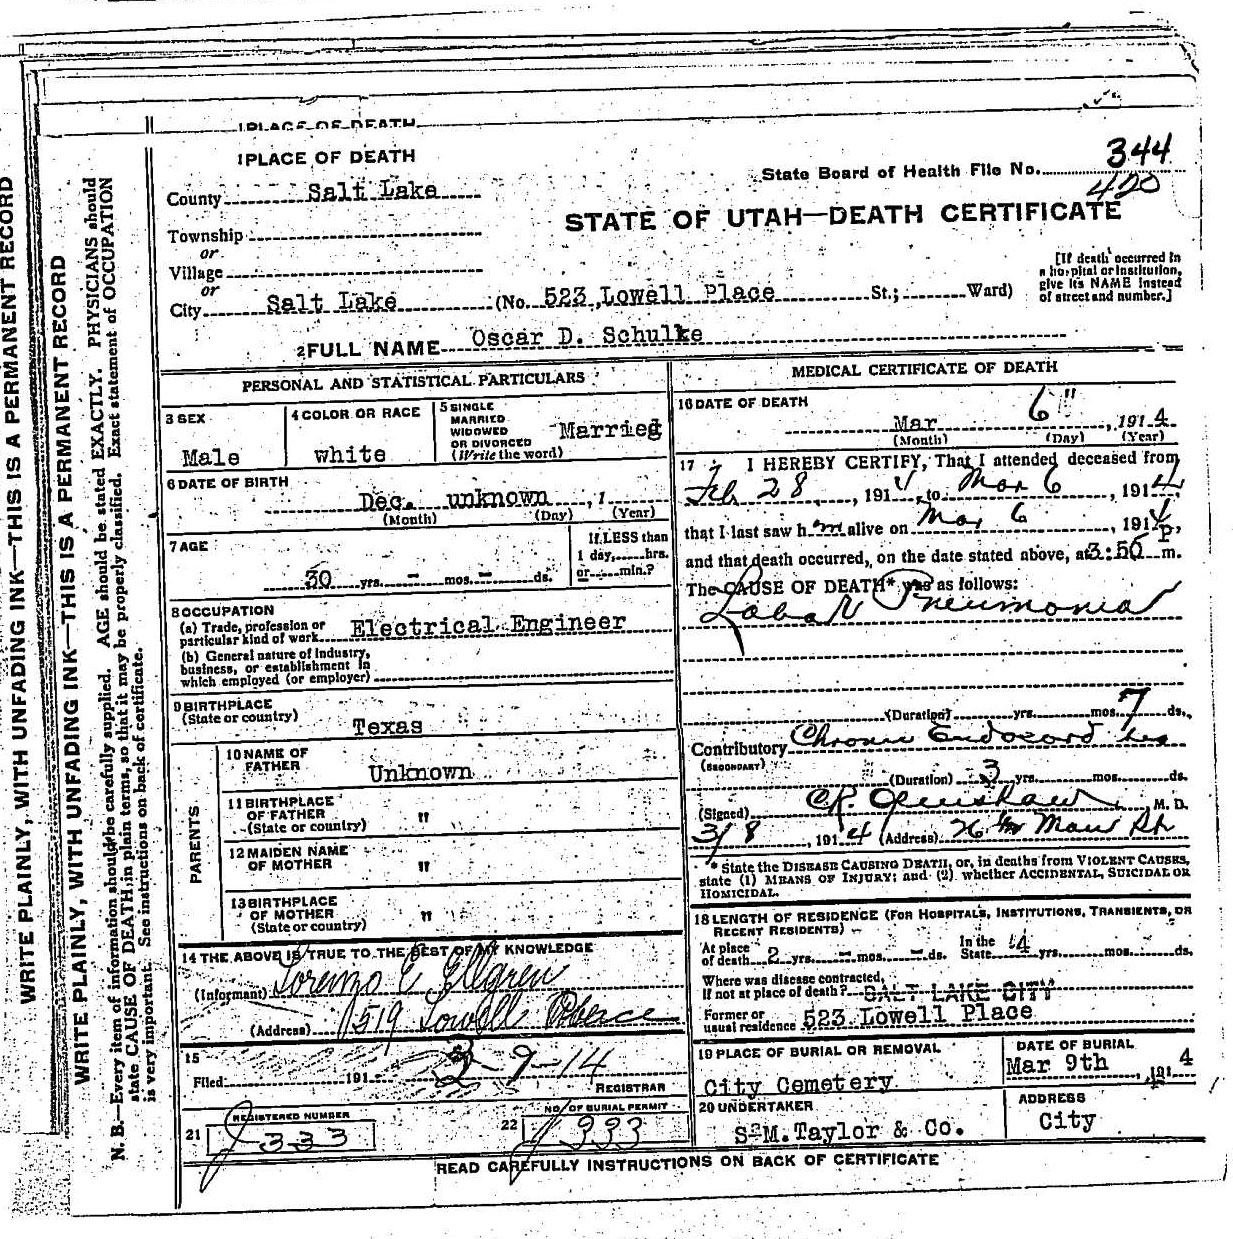 WRITE PLAINLY, WITH UNFADING INK—THIS IS A PERMANENT RECORD
WRITE PLAINLY, WITH UNFADING INK—THIS IS A PERMANENT RECORD
N. B.—Every item of information should be carefully supplied. AGE should be stated EXACTLY. PHYSICIANS should
state CAUSE OF DEATH in plain terms, so that it may be properly classified. Exact statement of OCCUPATION
is very important. See instructions on back of certificate.
1 PLACE OF DEATH
1 PLACE OF DEATH
State Board of Health File No. 344
420
County Salt Lake
STATE OF UTAH—DEATH CERTIFICATE
Township
or
Village
or
City Salt Lake (No. 523, Lowell Place St.; Ward)
[If death occurred in
a hospital or institution,
give its NAME instead
of street and number.]
2 FULL NAME Oscar D. Schulke
PERSONAL AND STATISTICAL PARTICULARS
3 SEX
Male
4 COLOR OR RACE
white
5 SINGLE
MARRIED
WIDOWED
OR DIVORCED
(Write the word)
Married
6 DATE OF BIRTH
Dec. unknown , 1
(Month) (Day) (Year)
7 AGE
30 yrs. - mos. - ds.
If LESS than
1 day, hrs.
or min.?
8 OCCUPATION
(a) Trade, profession or
particular kind of work Electrical Engineer
(b) General nature of industry,
business, or establishment in
which employed (or employer)
9 BIRTHPLACE
(State or country)
Texas
PARENTS
10 NAME OF
FATHER
Unknown
11 BIRTHPLACE
OF FATHER
(State or country)
"
12 MAIDEN NAME
OF MOTHER
"
13 BIRTHPLACE
OF MOTHER
(State or country)
"
14 THE ABOVE IS TRUE TO THE BEST OF MY KNOWLEDGE
(Informant) Lorenzo E Ellgren
(Address) 519 Lowell Place
15
Filed 191 3-9-14
REGISTRAR
21 REGISTERED NUMBER
J 333
22 NO. OF BURIAL PERMIT
J 333
MEDICAL CERTIFICATE OF DEATH
16 DATE OF DEATH
Mar 6" , 1914
(Month) (Day) (Year)
17 I HEREBY CERTIFY, That I attended deceased from
Feb 28 , 1914, to Mar 6 , 1914,
that I last saw him alive on Mar 6 , 1914,
and that death occurred, on the date stated above, at 3:50 P m.
The CAUSE OF DEATH* was as follows:
Lobar Pneumonia
(Duration) yrs. mos. 7 ds.,
Contributory Chronic
(SECONDARY)
(Duration) 3 yrs. mos. ds.
(Signed) M. D.
3/8 , 1914 (Address) Main St
* State the DISEASE CAUSING DEATH, or, in deaths from VIOLENT CAUSES,
state (1) MEANS OF INJURY; and (2) whether ACCIDENTAL, SUICIDAL OR
HOMICIDAL.
18 LENGTH OF RESIDENCE (FOR HOSPITALS, INSTITUTIONS, TRANSIENTS, OR
RECENT RESIDENTS)
At place
of death 2 yrs. - mos. - ds.
In the
State 4 yrs. mos. ds.
Where was disease contracted,
if not at place of death? SALT LAKE CITY
Former or
usual residence 523 Lowell Place
19 PLACE OF BURIAL OR REMOVAL
City Cemetery
DATE OF BURIAL
Mar 9th , 1914
20 UNDERTAKER
S. M. Taylor & Co.
ADDRESS
City
READ CAREFULLY INSTRUCTIONS ON BACK OF CERTIFICATE